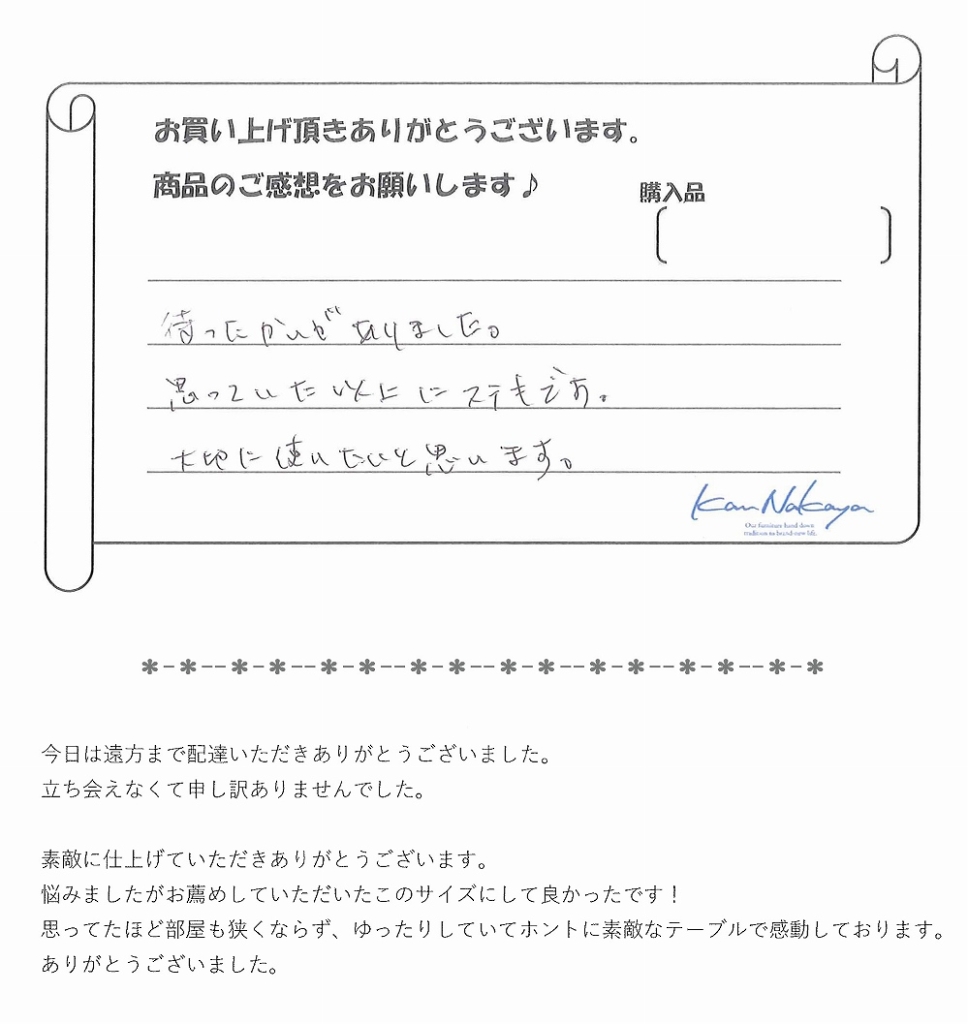 お買い上げ頂きありがとうございます。
商品のご感想をお願いします♪
購入品
待ったかいがありました。
思っていた以上にステキです。
大切に使いたいと思います。
Kan Nakaya
Our furniture hand down
tradition to brand-new life.
*-*--*-*--*-*--*-*--*-*--*-*--*-*--*-*
今日は遠方まで配達いただきありがとうございました。
立ち会えなくて申し訳ありませんでした。
素敵に仕上げていただきありがとうございます。
悩みましたがお薦めしていただいたこのサイズにして良かったです！
思ってたほど部屋も狭くならず、ゆったりしていてホントに素敵なテーブルで感動しております。
ありがとうございました。